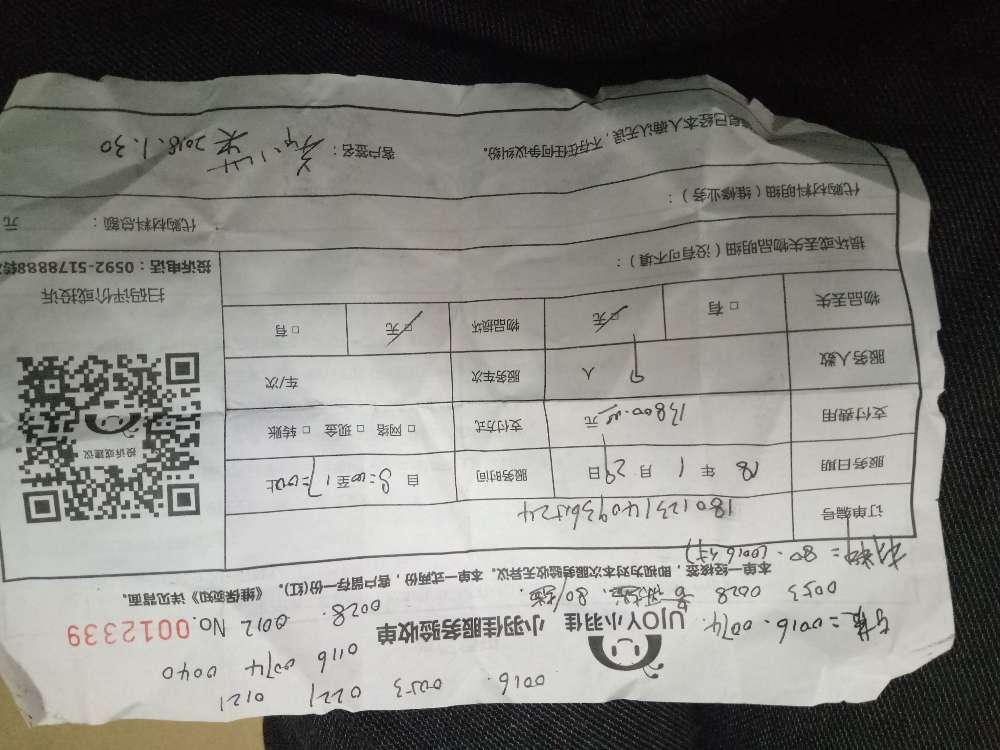 0016. 0253 0221 0121
0116 0074 0040
UJOY小羽佳 小羽佳服务验收单 No. 0012339
=0016. 0074. 0028. 0012
0053 0028 80/
本单一经核签,即视为对本次服务验收无异议。本单一式两份,客户留存一份(红)。《维保须知》详见背面。
=80. (0016
订单编号
服务日期 18 年 1 月 29 日 服务时间 自 8:00至17:00止
支付费用 元 支付方式 □ 网络 □ 现金 □ 转账
服务人数 9 人 服务车次 车/次
物品丢失 □ 有 □ 无 物品损坏 □ 无 □ 有
损坏或丢失物品明细(没有可不填):
代购材料明细(维修业务):
代购材料总额: 元
已经本人确认无误,不存在任何争议纠纷。
客户签名: 2018.1.30
投诉或建议
扫码评价或投诉
投诉电话:0592-5178888转